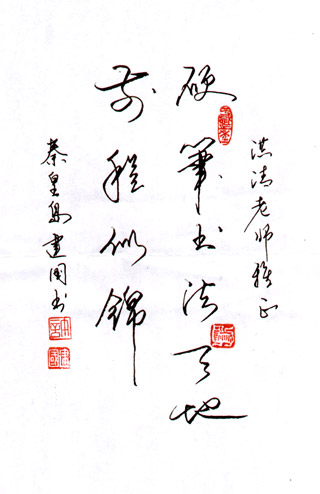 洪清老师雅正
硬笔书法天地
前程似锦
秦皇岛建国书